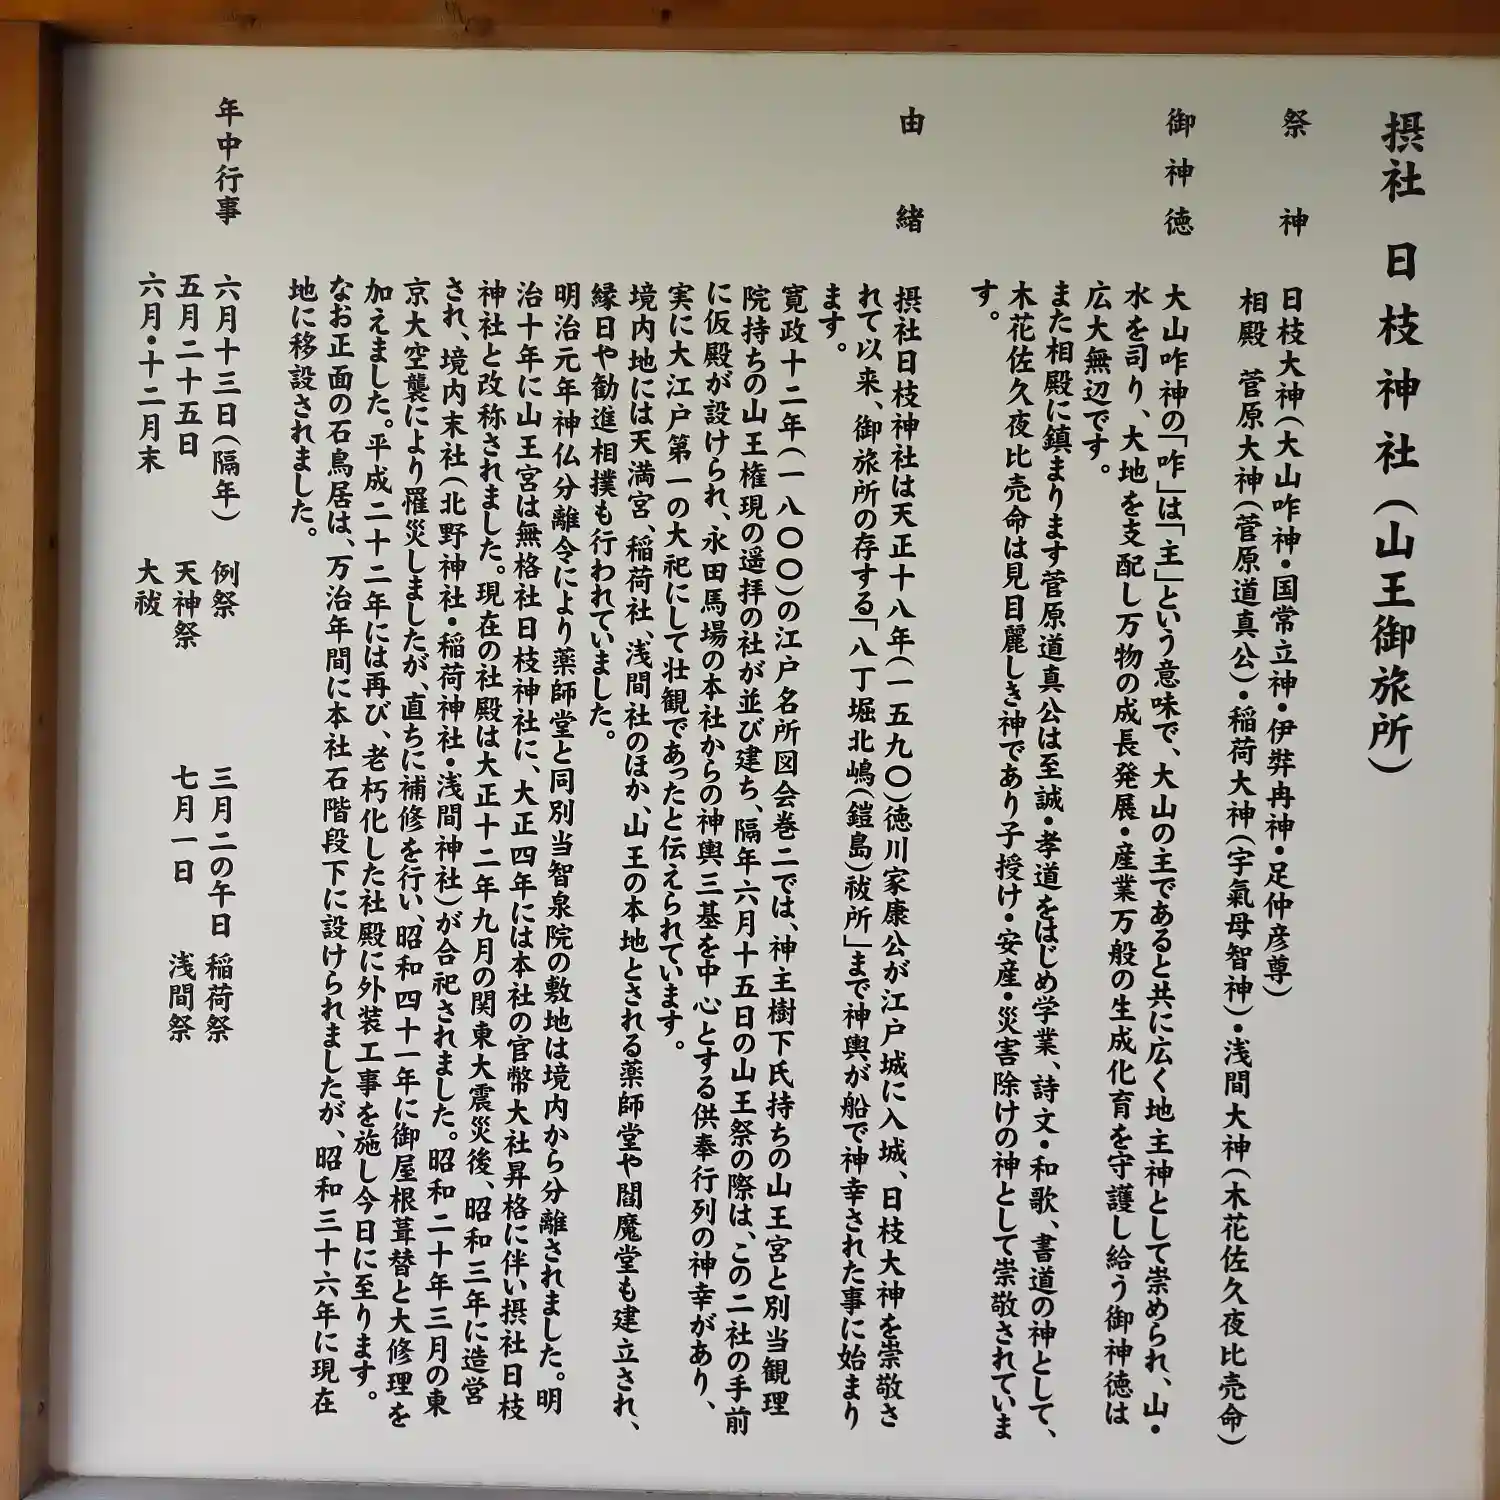 摂社 日枝神社(山王御旅所)
祭神
日枝大神(大山咋神・国常立神・伊弉冉神・足仲彦尊)
相殿 菅原大神(菅原道真公)・稲荷大神(宇氣母智神)・浅間大神(木花佐久夜比売命)
御神徳
大山咋神の「咋」は「主」という意味で、大山の主であると共に広く地主神として崇められ、山・
水を司り、大地を支配し万物の成長発展・産業万般の生成化育を守護し給う御神徳は
広大無辺です。
また相殿に鎮まります菅原道真公は至誠・孝道をはじめ学業、詩文・和歌、書道の神として、
木花佐久夜比売命は見目麗しき神であり子授け・安産・災害除けの神として崇敬されていま
す。
由緒
摂社日枝神社は天正十八年(一五九〇)徳川家康公が江戸城に入城、日枝大神を崇敬さ
れて以来、御旅所の存する「八丁堀北嶋(鎧島)祓所」まで神輿が船で神幸された事に始まり
ます。
寛政十二年(一八〇〇)の江戸名所図会巻二では、神主樹下氏持ちの山王宮と別当観理
院持ちの山王権現の遥拝の社が並び建ち、隔年六月十五日の山王祭の際は、この二社の手前
に仮殿が設けられ、永田馬場の本社からの神輿三基を中心とする供奉行列の神幸があり、
実に大江戸第一の大祀にして壮観であったと伝えられています。
境内地には天満宮、稲荷社、浅間社のほか、山王の本地とされる薬師堂や閻魔堂も建立され、
縁日や勧進相撲も行われていました。
明治元年神仏分離令により薬師堂と同別当智泉院の敷地は境内から分離されました。明
治十年に山王宮は無格社日枝神社に、大正四年には本社の官幣大社昇格に伴い摂社日枝
神社と改称されました。現在の社殿は大正十二年九月の関東大震災後、昭和三年に造営
され、境内末社(北野神社・稲荷神社・浅間神社)が合祀されました。昭和二十年三月の東
京大空襲により罹災しましたが、直ちに補修を行い、昭和四十一年に御屋根葺替と大修理を
加えました。平成二十二年には再び、老朽化した社殿に外装工事を施し今日に至ります。
なお正面の石鳥居は、万治年間に本社石階段下に設けられましたが、昭和三十六年に現在
地に移設されました。
年中行事
六月十三日(隔年) 例祭 三月二の午日 稲荷祭
五月二十五日 天神祭 七月一日 浅間祭
六月・十二月末 大祓